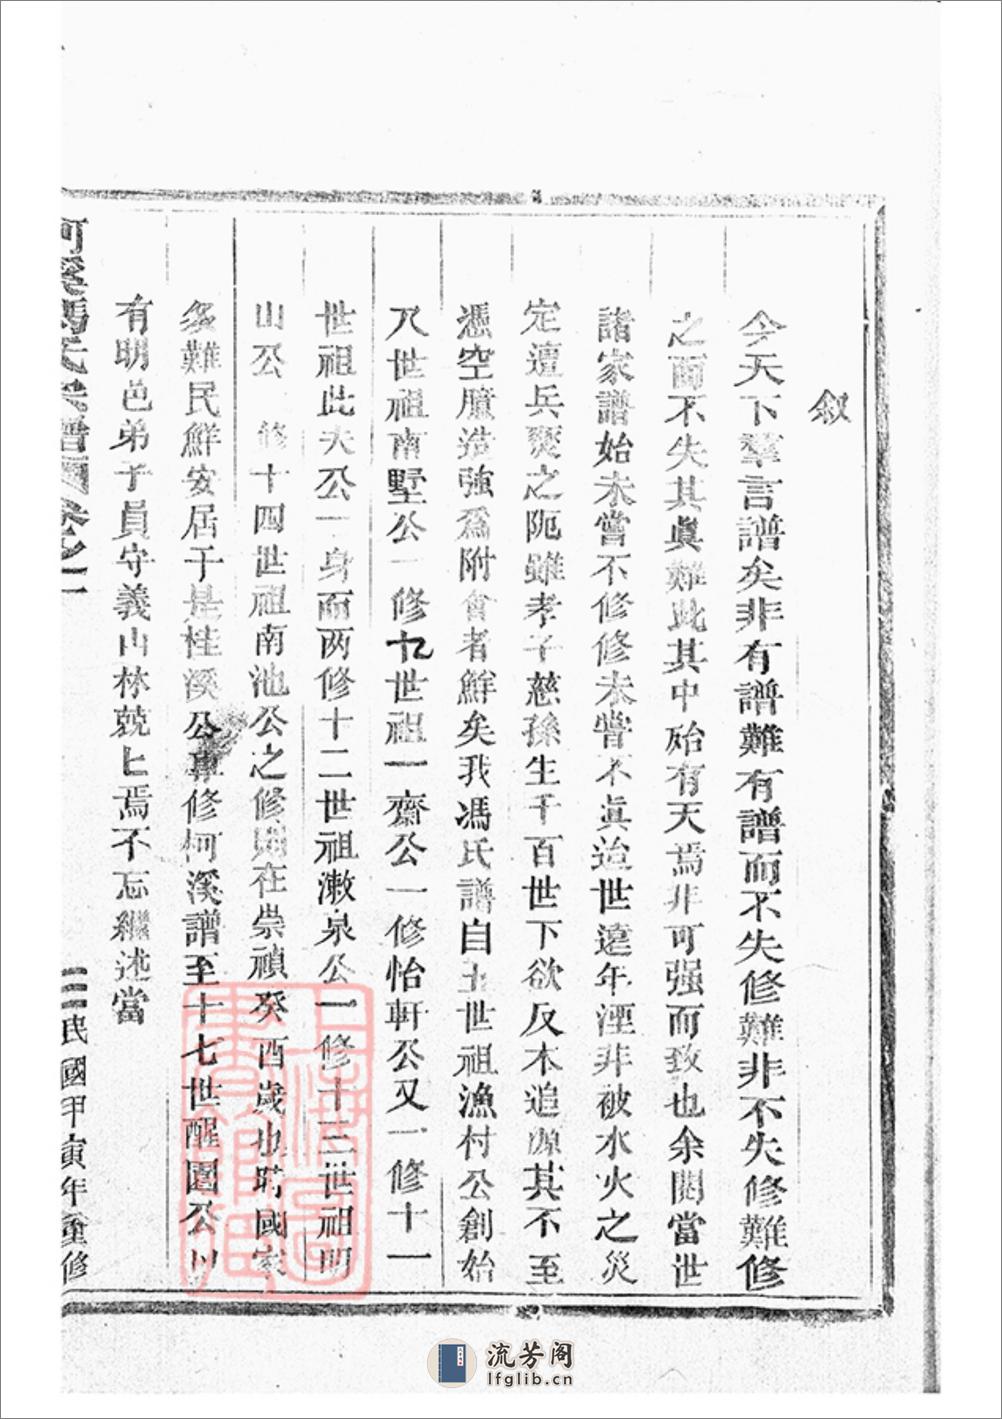 叙
今天下羣言譜矣非有譜難有譜而不失修難非不失修難修
之而不失其眞難此其中殆有天焉非可强而致也余閱當世
諸家譜始未嘗不修修未嘗不眞迨世遠年湮非被水火之災
定遭兵燹之阨雖孝子慈孫生千百世下欲反本追源其不至
憑空臆造強爲附會者鮮矣我馮氏譜自五世祖漁村公創始
八世祖南墅公一修九世祖一齋公一修怡軒公又一修十一
世祖此夫公一身而两修十二世祖漱泉公一修十三世祖明
山公 修十四世祖南池公之修則在崇禎癸酉歲也時國家
多難民鮮安居于是桂溪公專修柯溪譜至十七世醒園公以
有明邑弟子員守義山林兢匕焉不忘繼述當
柯溪馮氏宗譜 卷之一
民國甲寅年重修
上海圖書館藏
流芳阁
lfglib.cn